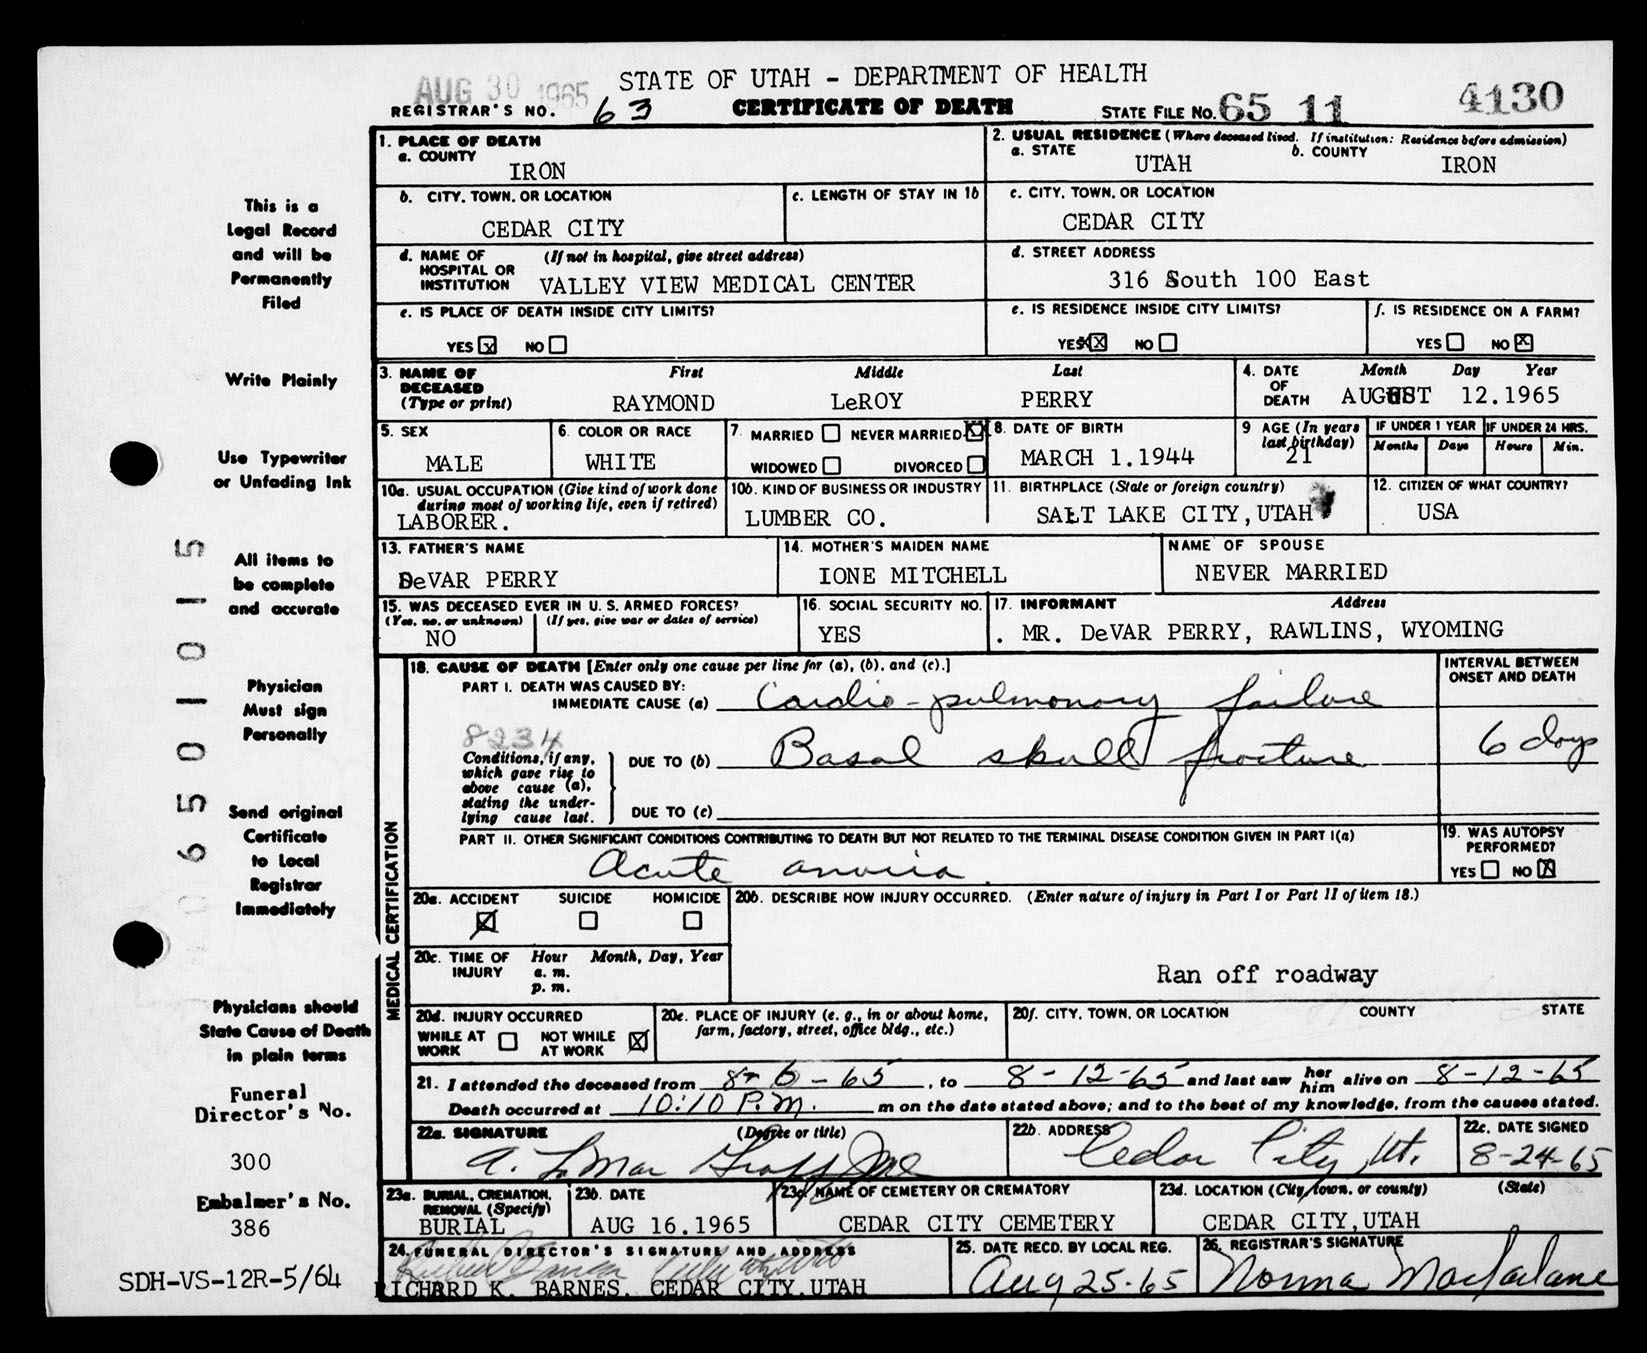 AUG 30 1965
STATE OF UTAH - DEPARTMENT OF HEALTH
REGISTRAR'S NO. 63
CERTIFICATE OF DEATH
STATE FILE NO. 65 11 4130
This is a
Legal Record
and will be
Permanently
Filed
Write Plainly
Use Typewriter
or Unfading Ink
All items to
be complete
and accurate
Physician
Must sign
Personally
Send original
Certificate
to Local
Registrar
Immediately
Physicians should
State Cause of Death
in plain terms
Funeral
Director's No.
300
Embalmer's No.
386
SDH-VS-12R-5/64
06501015
1. PLACE OF DEATH
a. COUNTY
IRON
2. USUAL RESIDENCE (Where deceased lived. If institution: Residence before admission)
a. STATE UTAH b. COUNTY IRON
b. CITY, TOWN, OR LOCATION
CEDAR CITY
c. LENGTH OF STAY IN 1b
c. CITY, TOWN, OR LOCATION
CEDAR CITY
d. NAME OF HOSPITAL OR INSTITUTION (If not in hospital, give street address)
VALLEY VIEW MEDICAL CENTER
d. STREET ADDRESS
316 South 100 East
e. IS PLACE OF DEATH INSIDE CITY LIMITS?
YES X NO
e. IS RESIDENCE INSIDE CITY LIMITS?
YES X NO
f. IS RESIDENCE ON A FARM?
YES NO X
3. NAME OF DECEASED (Type or print)
First Middle Last
RAYMOND LeROY PERRY
4. DATE OF DEATH
Month Day Year
AUGUST 12.1965
5. SEX
MALE
6. COLOR OR RACE
WHITE
7. MARRIED NEVER MARRIED X
WIDOWED DIVORCED
8. DATE OF BIRTH
MARCH 1.1944
9 AGE (In years last birthday)
21
IF UNDER 1 YEAR
Months Days
IF UNDER 24 HRS.
Hours Min.
10a. USUAL OCCUPATION (Give kind of work done during most of working life, even if retired)
LABORER.
10b. KIND OF BUSINESS OR INDUSTRY
LUMBER CO.
11. BIRTHPLACE (State or foreign country)
SALT LAKE CITY, UTAH
12. CITIZEN OF WHAT COUNTRY?
USA
13. FATHER'S NAME
DeVAR PERRY
14. MOTHER'S MAIDEN NAME
IONE MITCHELL
NAME OF SPOUSE
NEVER MARRIED
15. WAS DECEASED EVER IN U. S. ARMED FORCES?
(Yes, no, or unknown) (If yes, give war or dates of service)
NO
16. SOCIAL SECURITY NO.
YES
17. INFORMANT Address
. MR. DeVAR PERRY, RAWLINS, WYOMING
MEDICAL CERTIFICATION
18. CAUSE OF DEATH [Enter only one cause per line for (a), (b), and (c).]
INTERVAL BETWEEN ONSET AND DEATH
PART I. DEATH WAS CAUSED BY:
IMMEDIATE CAUSE (a) Cardio-pulmonary failure
8234
Conditions, if any, which gave rise to above cause (a), stating the under-lying cause last.
DUE TO (b) Basal skull fracture
6 days
DUE TO (c)
PART II. OTHER SIGNIFICANT CONDITIONS CONTRIBUTING TO DEATH BUT NOT RELATED TO THE TERMINAL DISEASE CONDITION GIVEN IN PART I(a)
Acute anoxia.
19. WAS AUTOPSY PERFORMED?
YES NO X
20a. ACCIDENT SUICIDE HOMICIDE
X
20b. DESCRIBE HOW INJURY OCCURRED. (Enter nature of injury in Part I or Part II of item 18.)
Ran off roadway
20c. TIME OF INJURY Hour Month, Day, Year
a. m.
p. m.
20d. INJURY OCCURRED
WHILE AT WORK NOT WHILE AT WORK X
20e. PLACE OF INJURY (e. g., in or about home, farm, factory, street, office bldg., etc.)
20f. CITY, TOWN, OR LOCATION COUNTY STATE
21. I attended the deceased from 8-6-65, to 8-12-65 and last saw her him alive on 8-12-65
Death occurred at 10:10 P.M. m on the date stated above; and to the best of my knowledge, from the causes stated.
22a. SIGNATURE (Degree or title)
A. LaMar Graff
22b. ADDRESS
Cedar City, Ut.
22c. DATE SIGNED
8-24-65
23a. BURIAL, CREMATION, REMOVAL (Specify)
BURIAL
23b. DATE
AUG 16.1965
23c. NAME OF CEMETERY OR CREMATORY
CEDAR CITY CEMETERY
23d. LOCATION (City, town, or county) (State)
CEDAR CITY, UTAH
24. FUNERAL DIRECTOR'S SIGNATURE AND ADDRESS
RICHARD K. BARNES. CEDAR CITY, UTAH
25. DATE RECD. BY LOCAL REG.
Aug 25-65
26. REGISTRAR'S SIGNATURE
Norma Macfarlane